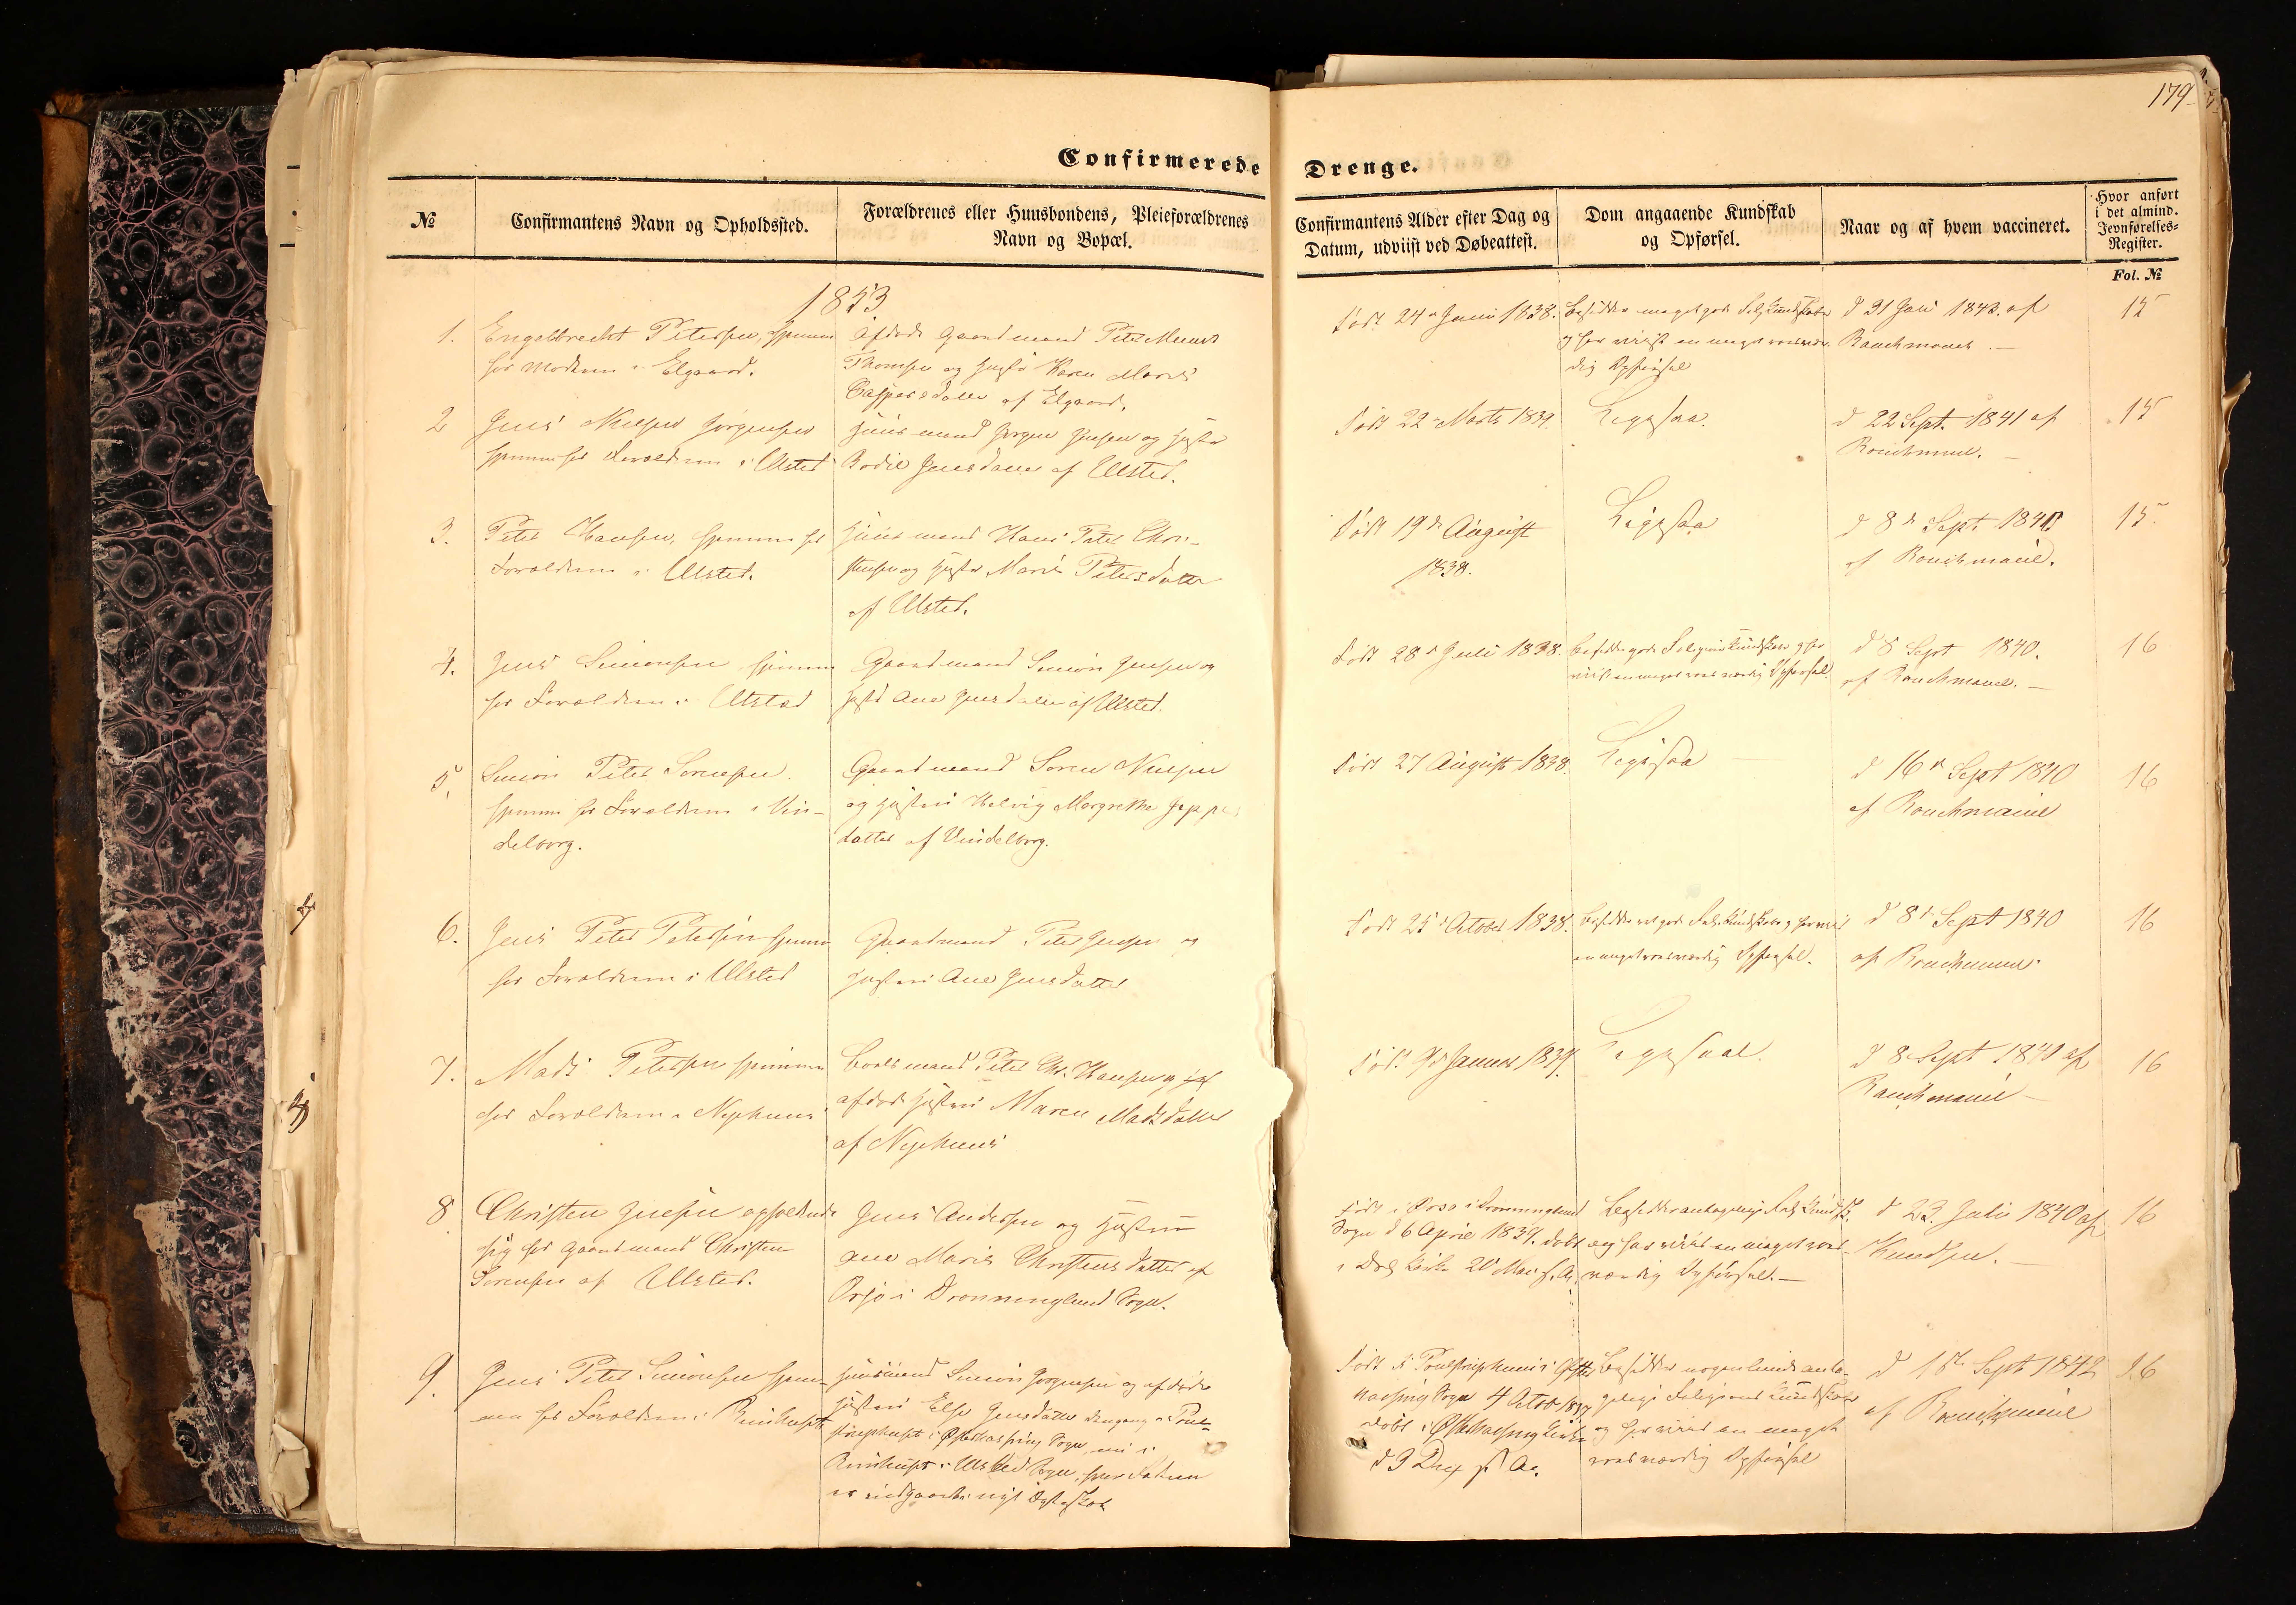 179
Confirmerede Drenge.
№
Confirmantens Navn og Opholdssted.
Forældrenes eller Huusbondens, Pleieforældrenes
Navn og Bopæl.
Confirmantens Alder efter Dag og
Datum, udviist ved Døbeattest.
Dom angaaende Kundskab
og Opførsel.
Naar og af hvem vaccineret.
Hvor anført
i det almind.
Jevnførelses-
Register.
Fol. №
1853
1.
Engelbrecht Petersen, hjemme
hos Moderen i Elgaard.
afdøde Gaardmand Peter Munk
Thomsen og Hustru Karen Marie
Caspersdatter af Elgaard.
Født 24de Juni 1838.
besidder meget gode Relg. Kundskaber
og har viist en meget roesvær-
dig Opførsel
d 31 Juli 1843. af
15
2
Jens Nielsen Jørgensen
hjemme hos Forældrene i Ulsted
Huusmand Jørgen Jensen og Hustru
Bodil Jensdatter af Ulsted.
Født 22 Marts 1839.
Ligesaa.
d 22 Sept. 1841 af
15
3.
Peter Hansen, hjemme hos
Forældrene i Ulsted.
Huusmand Hans Peter Chri-
stensen og Hustru Marie Petersdatter
af Ulsted.
Født 19de August
1838.
Ligesaa
d 8de Sept.
15.
4.
Jens Simonsen hjemme
hos Forældrene i Ulsted
Gaardmand Simon Jensen og
Hustru Ane Jensdatter af Ulsted.
Født 28de Juli 1838.
besidder gode Religions Kundskaber og har
viist en meget roesværdig Opførsel.
d 8 Sept 1840.
16
5.
Simon Peter Sørensen
hjemme hos Forældrene i Vin-
delborg.
Gaardmand Søren Nielsen
og Hustru Helvig Margrethe Jeppes
datter af Vindelborg.
Født 27 August 1838.
Ligesaa
d 16de Sept 1840
16
6.
Jens Peter Petersen hjemme
hos Forældrene i Ulsted
Gaardmand Peter Jensen og
Hustru Ane Jensdatter
Født 25de October 1838.
en meget roesværdig Opførsel.
d 8de Sept 1840
16
7.
Mads Petersen hjemme
hos Forældrene i Nyehuus
Boelsmand Peter Chr. Hansen og
afdøde Hustru Maren Madsdatter
af Nyehuus
Født Januar 1839.
Ligesaa.
d 8 Sept 1840 af
16
8
Christen Jensen opholdende
sig hos Gaardmand Christen
Sørensen af Ulsted.
Jens Andersen og Hustru
Ane Marie Christensdatter af
i Dronninglund Sogn.
Født i i Dronninglund
Sogn d 6 April 1839. døbt
i Kirke 20 Mai s. A.
Besidder antagelige Relg. Kundsk.
og har viist en meget roes-
værdig Opførsel.
d 23. Juli 1840 af
Knudsen.
16
9.
Jens Peter Simonsen hjem-
me hos Forældrene i
Huusmand Simon Jørgensen og afdøde
Hustru Else Jensdatter dengang i
i Østerhassing Sogn nu i
i Ulsted Sogn, hvor Faderen
er indgaaet i nyt Ægteskab
Født i i Øster
hassing Sogn 4 Octob 1837
døbt i Østerhassing Kirke
d 3 Dec s. A.
Besidder nogenlunde anta-
gelige Religions Kundskaber
og har viist en meget
roesværdig Opførsel
Sept 1842
16